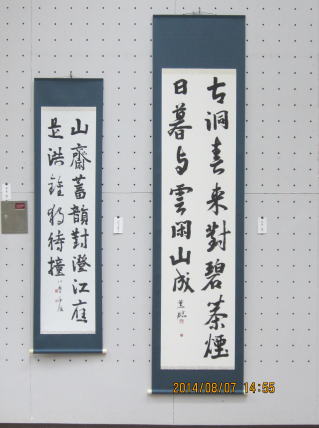 古洞春来對碧茶煙
日暮与雲閑山成
山齋蓄韻對澄江応
是洪鐘独待撞
2014/08/07 14:55